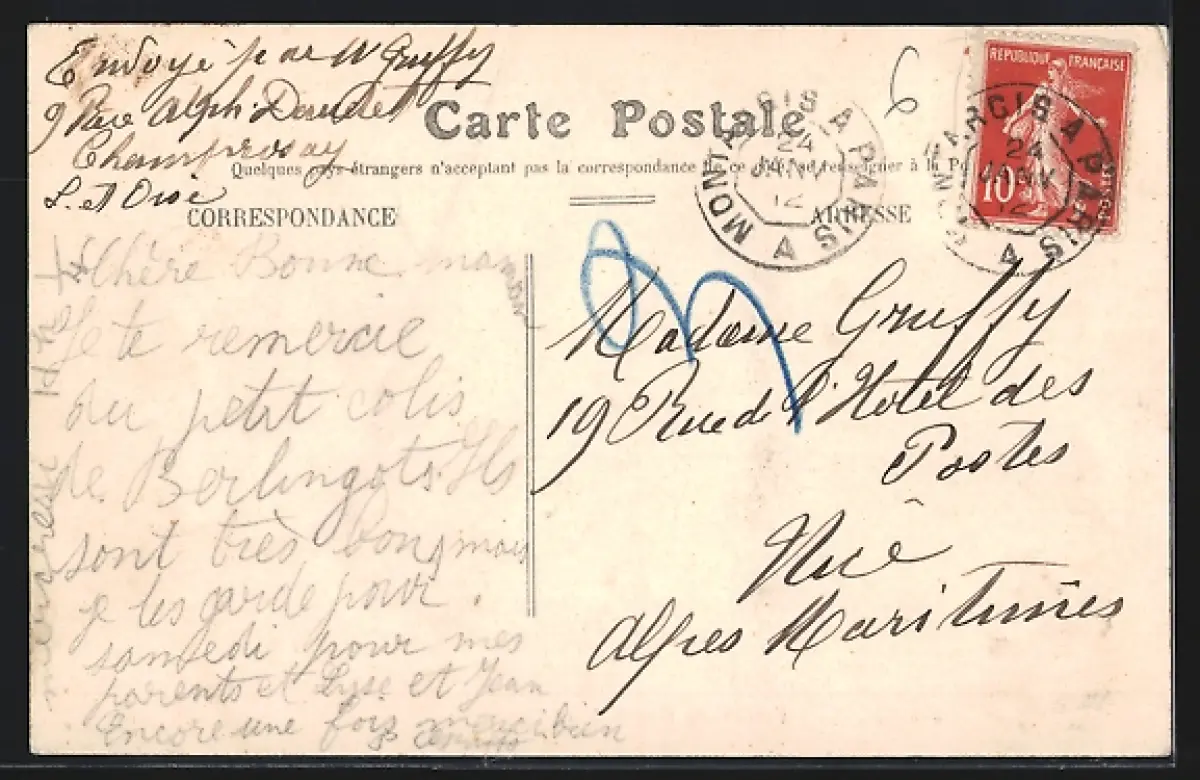 Envoyé par M Gruffy
9 Rue Alph. Daudet
Champrosay
S. et Oise
Carte Postale
Quelques pays étrangers n'acceptant pas la correspondance de ce côté, se renseigner à la Po
CORRESPONDANCE
ADRESSE
REPUBLIQUE FRANÇAISE
10
POSTES
MONTARGIS A PARIS
24
JANV
12
A
MONTARGIS A PARIS
24
JANV
12
A
6
Chère Bonne maman
Je te remercie
du petit colis
de Berlingots. Ils
sont très bons mais
je les garde pour
samedi pour mes
parents et Lyse et Jean
Encore une fois merci bien
Madame Gruffy
19 Rue de l'Hotel des
Postes
Nice
Alpes Maritimes